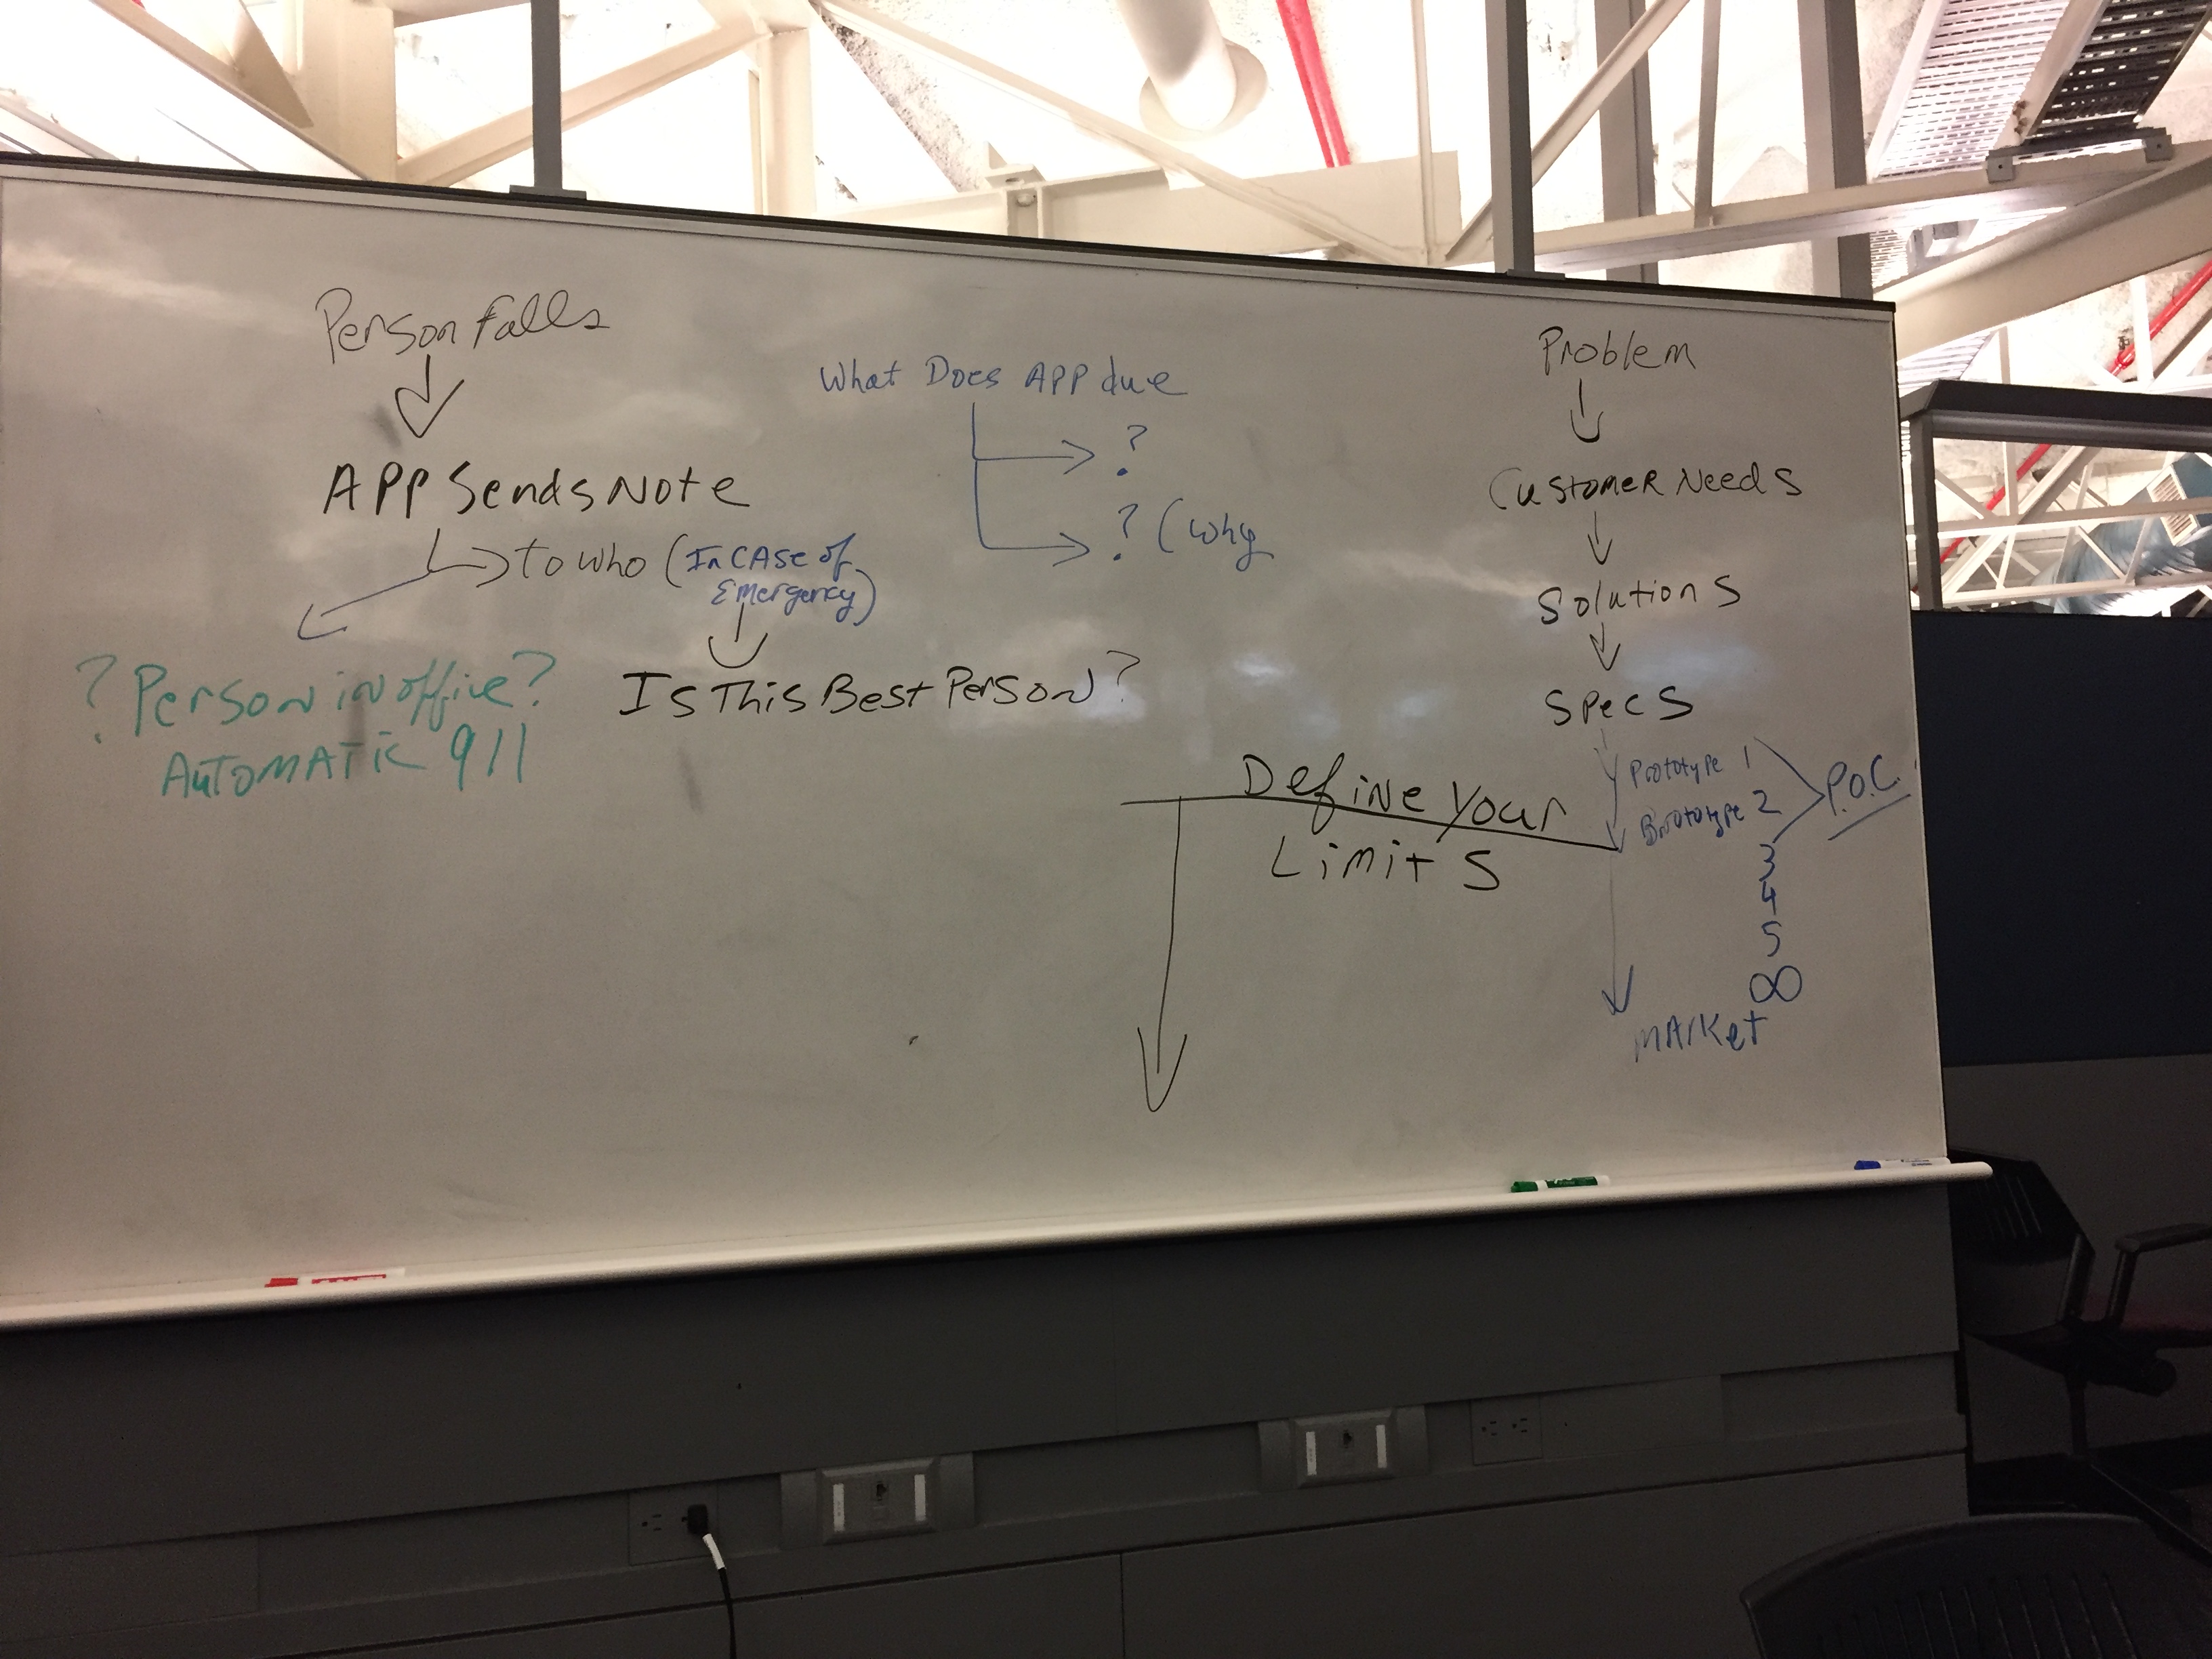 Person Falls
APP Sends Note
to who (In CASe of
Emergency)
Is This Best Person?
? Person in office?
AutoMATic 911
What Does APP due
?
? (why
Problem
Customer Needs
Solutions
Specs
Prototype 1
Prototype 2
3
4
5
∞
P.O.C.
MArket
Define Your
Limits